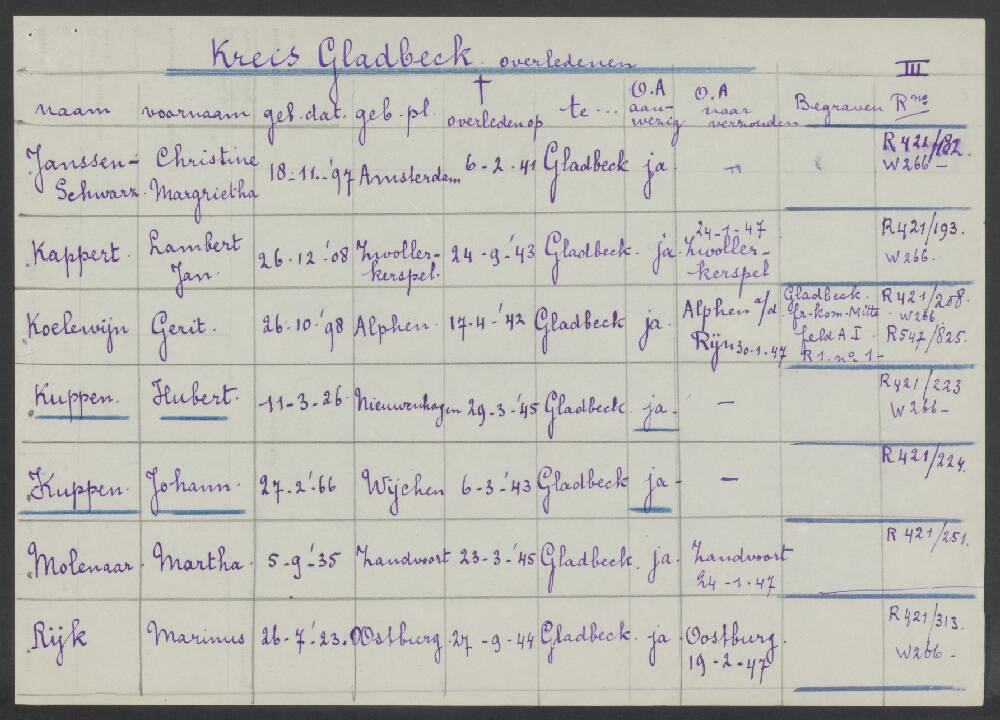 Kreis Gladbeck. overledenen III
naam voornaam geb. dat. geb. pl. † overleden op te ... O.A aan-wezig O.A naar verzonden Begraven Rno
Janssen-Schwarz. Christine Margrietha 18-11-'97 Amsterdam 6-2-41 Gladbeck ja. - R421/182. W266-
Kappert. Lambert Jan. 26.12.'08 Zwoller-kerspel. 24-9-'43 Gladbeck. ja. 24-1-47 Zwoller-kerspel R421/193. W266.
Koelewijn Gerit. 26-10-'98 Alphen. 17-4-'42 Gladbeck ja. Alphen a/d Rijn 30-1-47 Gladbeck. fr.kom-Mitte. feld A I. R1. no 1- R421/208. W266 R547/825.
Kuppen. Hubert. 11-3-26. Nieuwenhagen 29-3-'45 Gladbeck. ja- - R421/223 W266-
Kuppen. Johann. 27-2-'66 Wijchen 6-3-'43 Gladbeck ja- - R421/224.
Molenaar. Martha. 5-9-'35 Zandvoort 23-3-'45 Gladbeck. ja. Zandvoort 24-1-47 R421/251.
Rijk Marinus 26-7-'23. Oostburg. 27-9-44 Gladbeck. ja. Oostburg. 19-2-47 R421/313. W266-